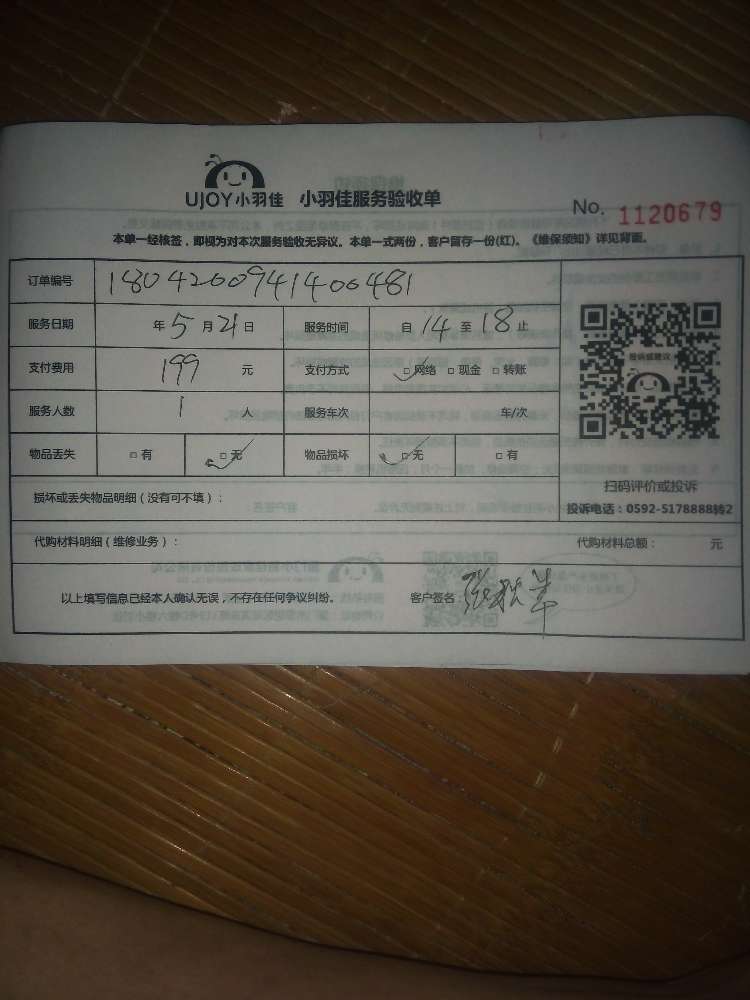 UJOY小羽佳 小羽佳服务验收单 No. 1120679
本单一经核签，即视为对本次服务验收无异议。本单一式两份，客户留存一份(红)。《维保须知》详见背面。
订单编号 180426094140048１
服务日期 年5月21日 服务时间 自14至18止
支付费用 199 元 支付方式 □网络 □现金 □转账
投诉或建议
服务人数 1 人 服务车次 车/次
物品丢失 □有 □无 物品损坏 □无 □有
扫码评价或投诉
损坏或丢失物品明细（没有可不填）：
投诉电话：0592-5178888转2
代购材料明细（维修业务）： 代购材料总额： 元
以上填写信息已经本人确认无误，不存在任何争议纠纷。 客户签名：张